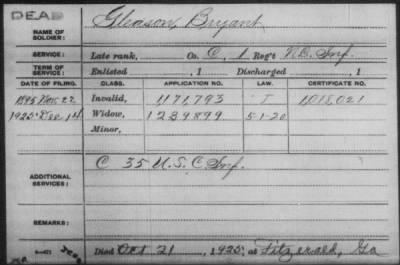 DEAD
NAME OF SOLDIER: Gleason, Bryant
SERVICE: Late rank, Co. C, 1 Reg't N.C. Inf.
TERM OF SERVICE: Enlisted , 1 Discharged , 1
DATE OF FILING. CLASS. APPLICATION NO. LAW. CERTIFICATE NO.
1895 Nov. 22 Invalid, 1171,793 I 1,018,021
1925 Dec 1st Widow, 1239899 5-1-20
Minor,
ADDITIONAL SERVICES: C 35 U.S.C. Inf.
REMARKS:
Died Oct 21, 1925, at Fitzgerald, Ga